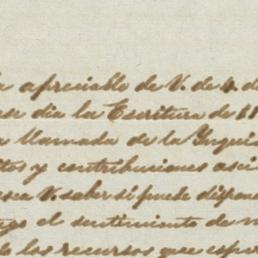 apreciable de V. de 4 de
ese dia la Escritura de 11
llamada de la Inquis
tos y contribuciones asci
V. saber si puede dispone
el sentimiento de
los recursos que espe